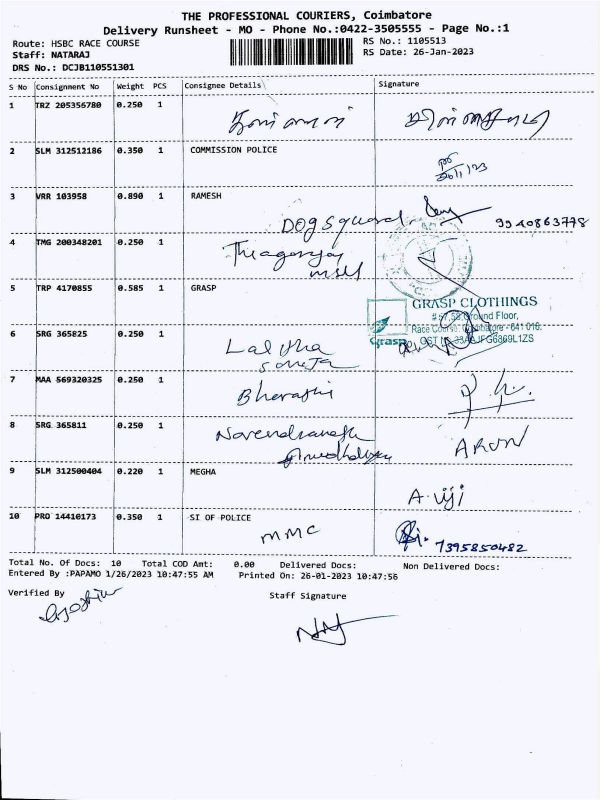 THE PROFESSIONAL COURIERS, Coimbatore
Delivery Runsheet - MO - Phone No.:0422-3505555 - Page No.:1
Route: HSBC RACE COURSE
Staff: NATARAJ
DRS No.: DCJB110551301
RS No.: 1105513
RS Date: 26-Jan-2023
S No Consignment No Weight PCS Consignee Details Signature
1 TRZ 205356780 0.250 1
2 SLM 312512186 0.350 1 COMMISSION POLICE
26/1/23
3 VRR 103958 0.890 1 RAMESH
Dog Squard 9940863778
4 TMG 200348201 0.250 1
5 TRP 4170855 0.585 1 GRASP
GRASP CLOTHINGS
Ground Floor,
Race Course, Coimbatore - 641 018.
Grasp
6 SRG 365825 0.250 1 Lalitha
7 MAA 569320325 0.250 1 Bharathi
8 SRG 365811 0.250 1
ARUN
9 SLM 312500404 0.220 1 MEGHA
A. Viji
10 PRO 14410173 0.350 1 SI OF POLICE
MMC 7395850482
Total No. Of Docs: 10 Total COD Amt: 0.00 Delivered Docs: Non Delivered Docs:
Entered By :PAPAMO 1/26/2023 10:47:55 AM Printed On: 26-01-2023 10:47:56
Verified By
Staff Signature